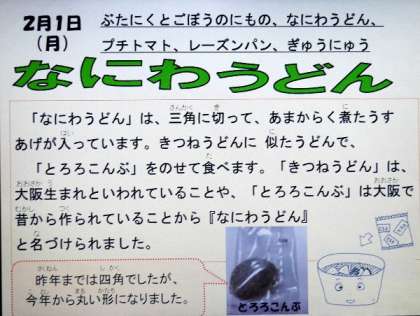 2月1日
（月）
ぶたにくとごぼうのにもの、なにわうどん、
プチトマト、レーズンパン、ぎゅうにゅう
なにわうどん
「なにわうどん」は、三角に切って、あまからく煮たうす
あげが入っています。きつねうどんに 似たうどんで、
「とろろこんぶ」をのせて食べます。「きつねうどん」は、
大阪生まれといわれていることや、「とろろこんぶ」は大阪で
昔から作られていることから『なにわうどん』
と名づけられました。
昨年までは四角でしたが、
今年から丸い形になりました。
とろろこんぶ